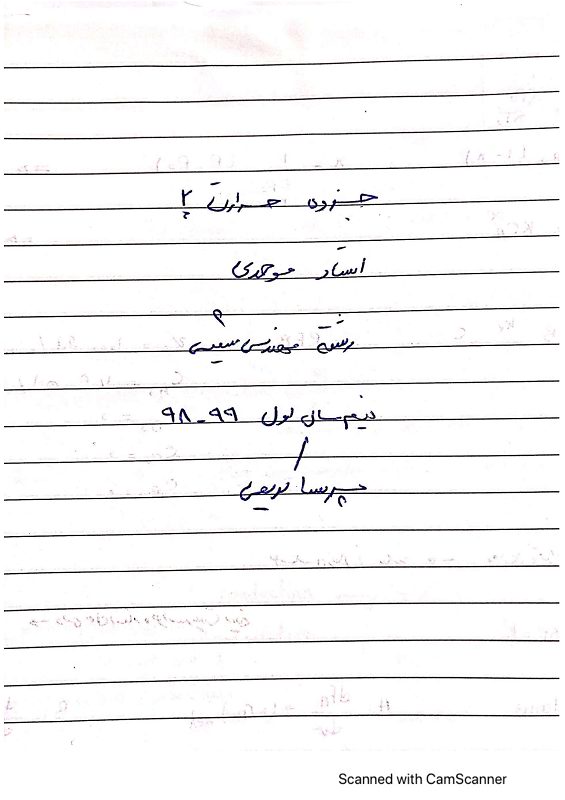 جزوه حرارت ۲
استاد موحدی
رشته مهندسی شیمی
نیم سال اول ۹۹-۹۸
پریسا
Scanned with CamScanner